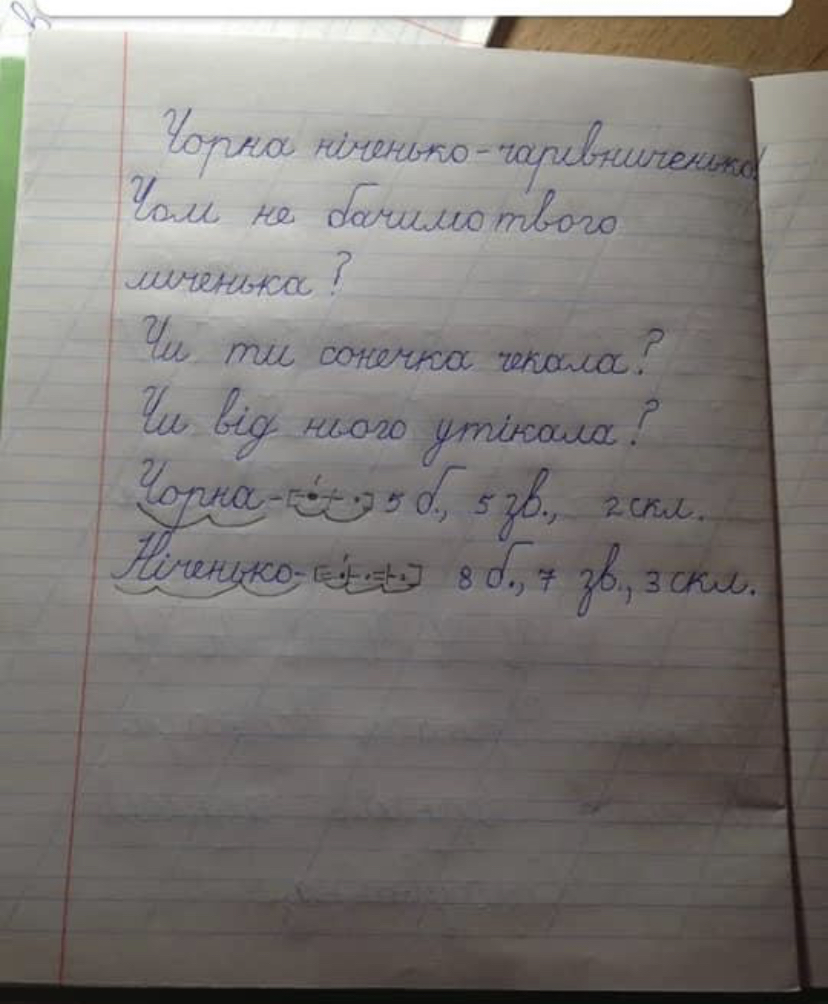 Чорна ніченько-чарівниченько!
Чом не бачимо твого
личенька?
Чи ти сонечка чекала?
Чи від нього утікала?
Чорна-[–•–|–•] 5 б., 5 зв., 2 скл.
Ніченько-[=•|–•=|–•] 8 б., 7 зв., 3 скл.